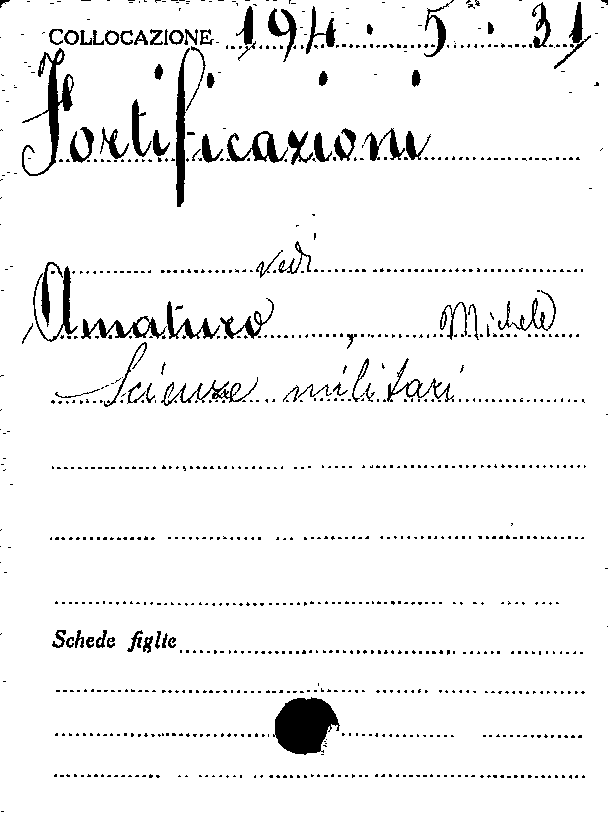 COLLOCAZIONE 194.5.31
Fortificazioni
vedi
Amaturo, Michele
Scienze militari
Schede figlie